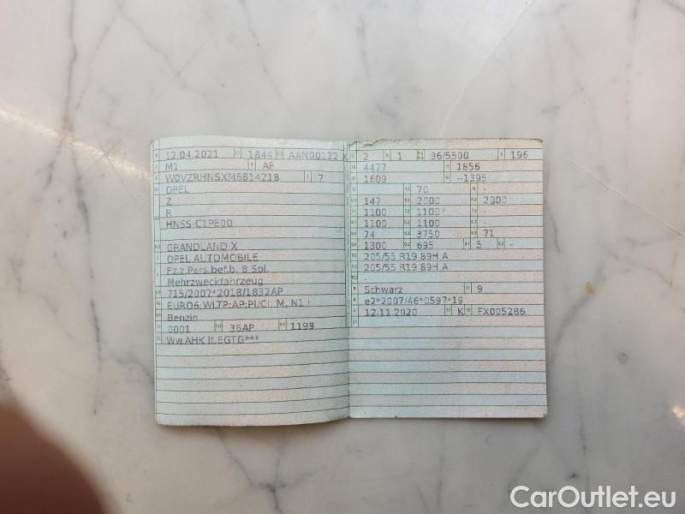 12.04.2021 1844 AAN00122 X
M1 AF
W0VZRHNSXM6814218 7
OPEL
Z
R
HNSS-C1PE00
GRANDLAND X
OPEL AUTOMOBILE
Fz.z.Pers.bef.b. 8 Spl.
Mehrzweckfahrzeug
715/2007*2018/1832AP
EURO6;WLTP;AP;PI/CI; M, N1 I
Benzin
0001 36AP 1199
Ww.AHK lt.EGTG***
2 1 96/5500 196
4477 1856
1609 -1395
- 70 - -
147 2000 2000
1100 1100 -
1100 1100 -
74 3750 71
1300 695 5 -
205/55 R19 89H A
205/55 R19 89H A
-
Schwarz 9
e2*2007/46*0597*19
12.11.2020 K FX005286
CarOutlet.eu